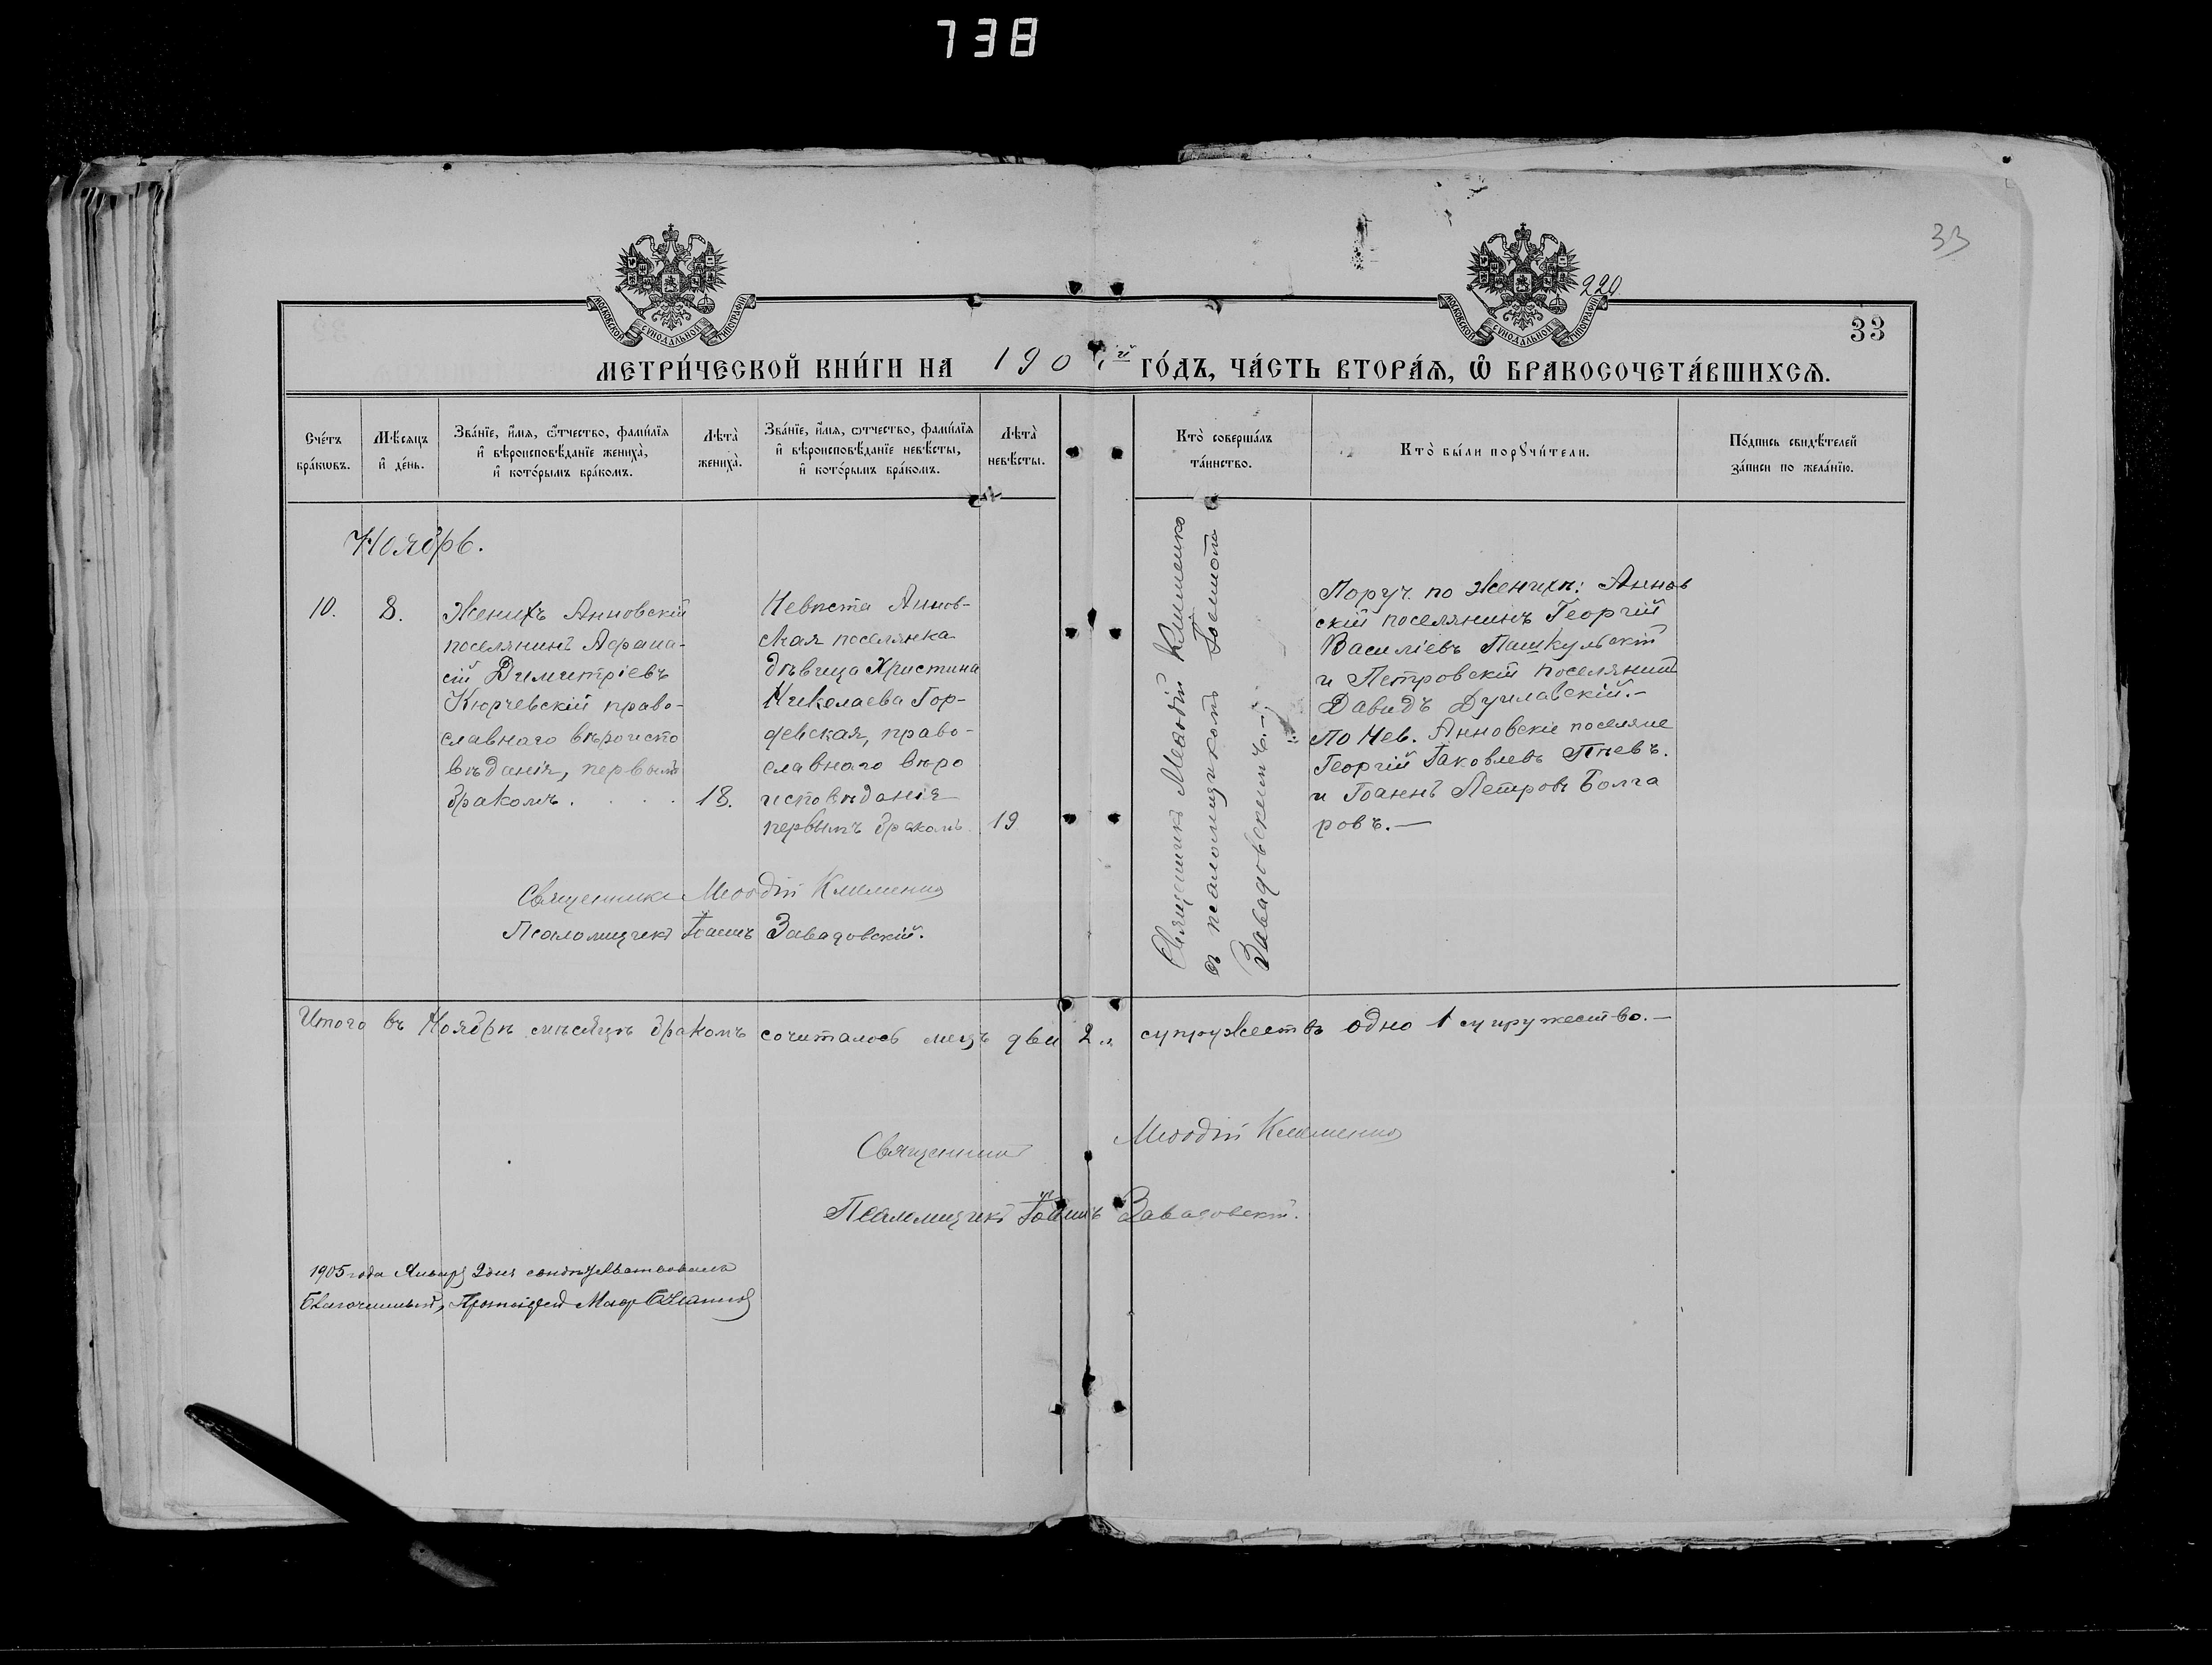 738
33
220
33
МОСКОВСКОЙ СѴНОДАЛЬНОЙ ТИПОГРАФІИ
МОСКОВСКОЙ СѴНОДАЛЬНОЙ ТИПОГРАФІИ
МЕТРИ́ЧЕСКОЙ КНИ́ГИ НА 190 й ГО́ДЪ, ЧА́СТЬ ВТОРА́Ѧ, Ѽ БРАКОСОЧЕТА́ВШИХСѦ.
Сче́тъ
бра́кѡвъ.
Мѣ́сѧцъ
и҆ де́нь.
Зва́нїе, и҆́мѧ, ѻ҆́тчество, фамѝлїѧ
и҆ вѣроисповѣ́данїе жениха̀,
и҆ кото́рымъ бра́комъ.
Лѣта̀
жениха̀.
Зва́нїе, и҆́мѧ, ѻтчество, фамѝлїѧ
и҆ вѣроисповѣ́данїе невѣ́сты,
и҆ кото́рымъ бра́комъ.
Лѣта̀
невѣ́сты.
Кто̀ соверша́лъ
та́инство.
Кто̀ бы́ли порꙋчи́тели.
По́дпись свидѣ́телей
за́писи по жела́нїю.
Ноябрь.
10.
8.
Женихъ Анновскій
поселянинъ Афана-
сій Димитріевъ
Кюрчевскій право-
славнаго вѣроиспо
вѣданія, первымъ
бракомъ . . . .
18.
Невѣста Аннов-
ская поселянка
дѣвица Христина
Николаева Гор-
девская, право-
славнаго вѣро
исповѣданія
первымъ бракомъ
19
Священникъ Меѳодій Клименко
съ псаломщикомъ Іоанномъ
Завадовскимъ.-
Поруч. по Женихѣ: Аннов
скій поселянинъ Георгій
Василіевъ Пашкульскій
и Петровскій поселянинъ
Давидъ .-
По Нев. Анновскіе поселяне
Георгій Іаковлевъ
и Іоаннъ Петровъ Болга
ровъ.—
Священникъ Меѳодій Клименко
Псаломщикъ Іоаннъ Завадовскій.
Итого въ Ноябрѣ мѣсяцѣ бракомъ сочиталось лицъ два 2 и супружествъ одно 1 супружество.-
Священникъ Меѳодій Клименко
Псаломщикъ Іоаннъ Завадовскій.
1905 года Января 2 дня свидѣтельствовалъ
Благочинный, Протоіерей